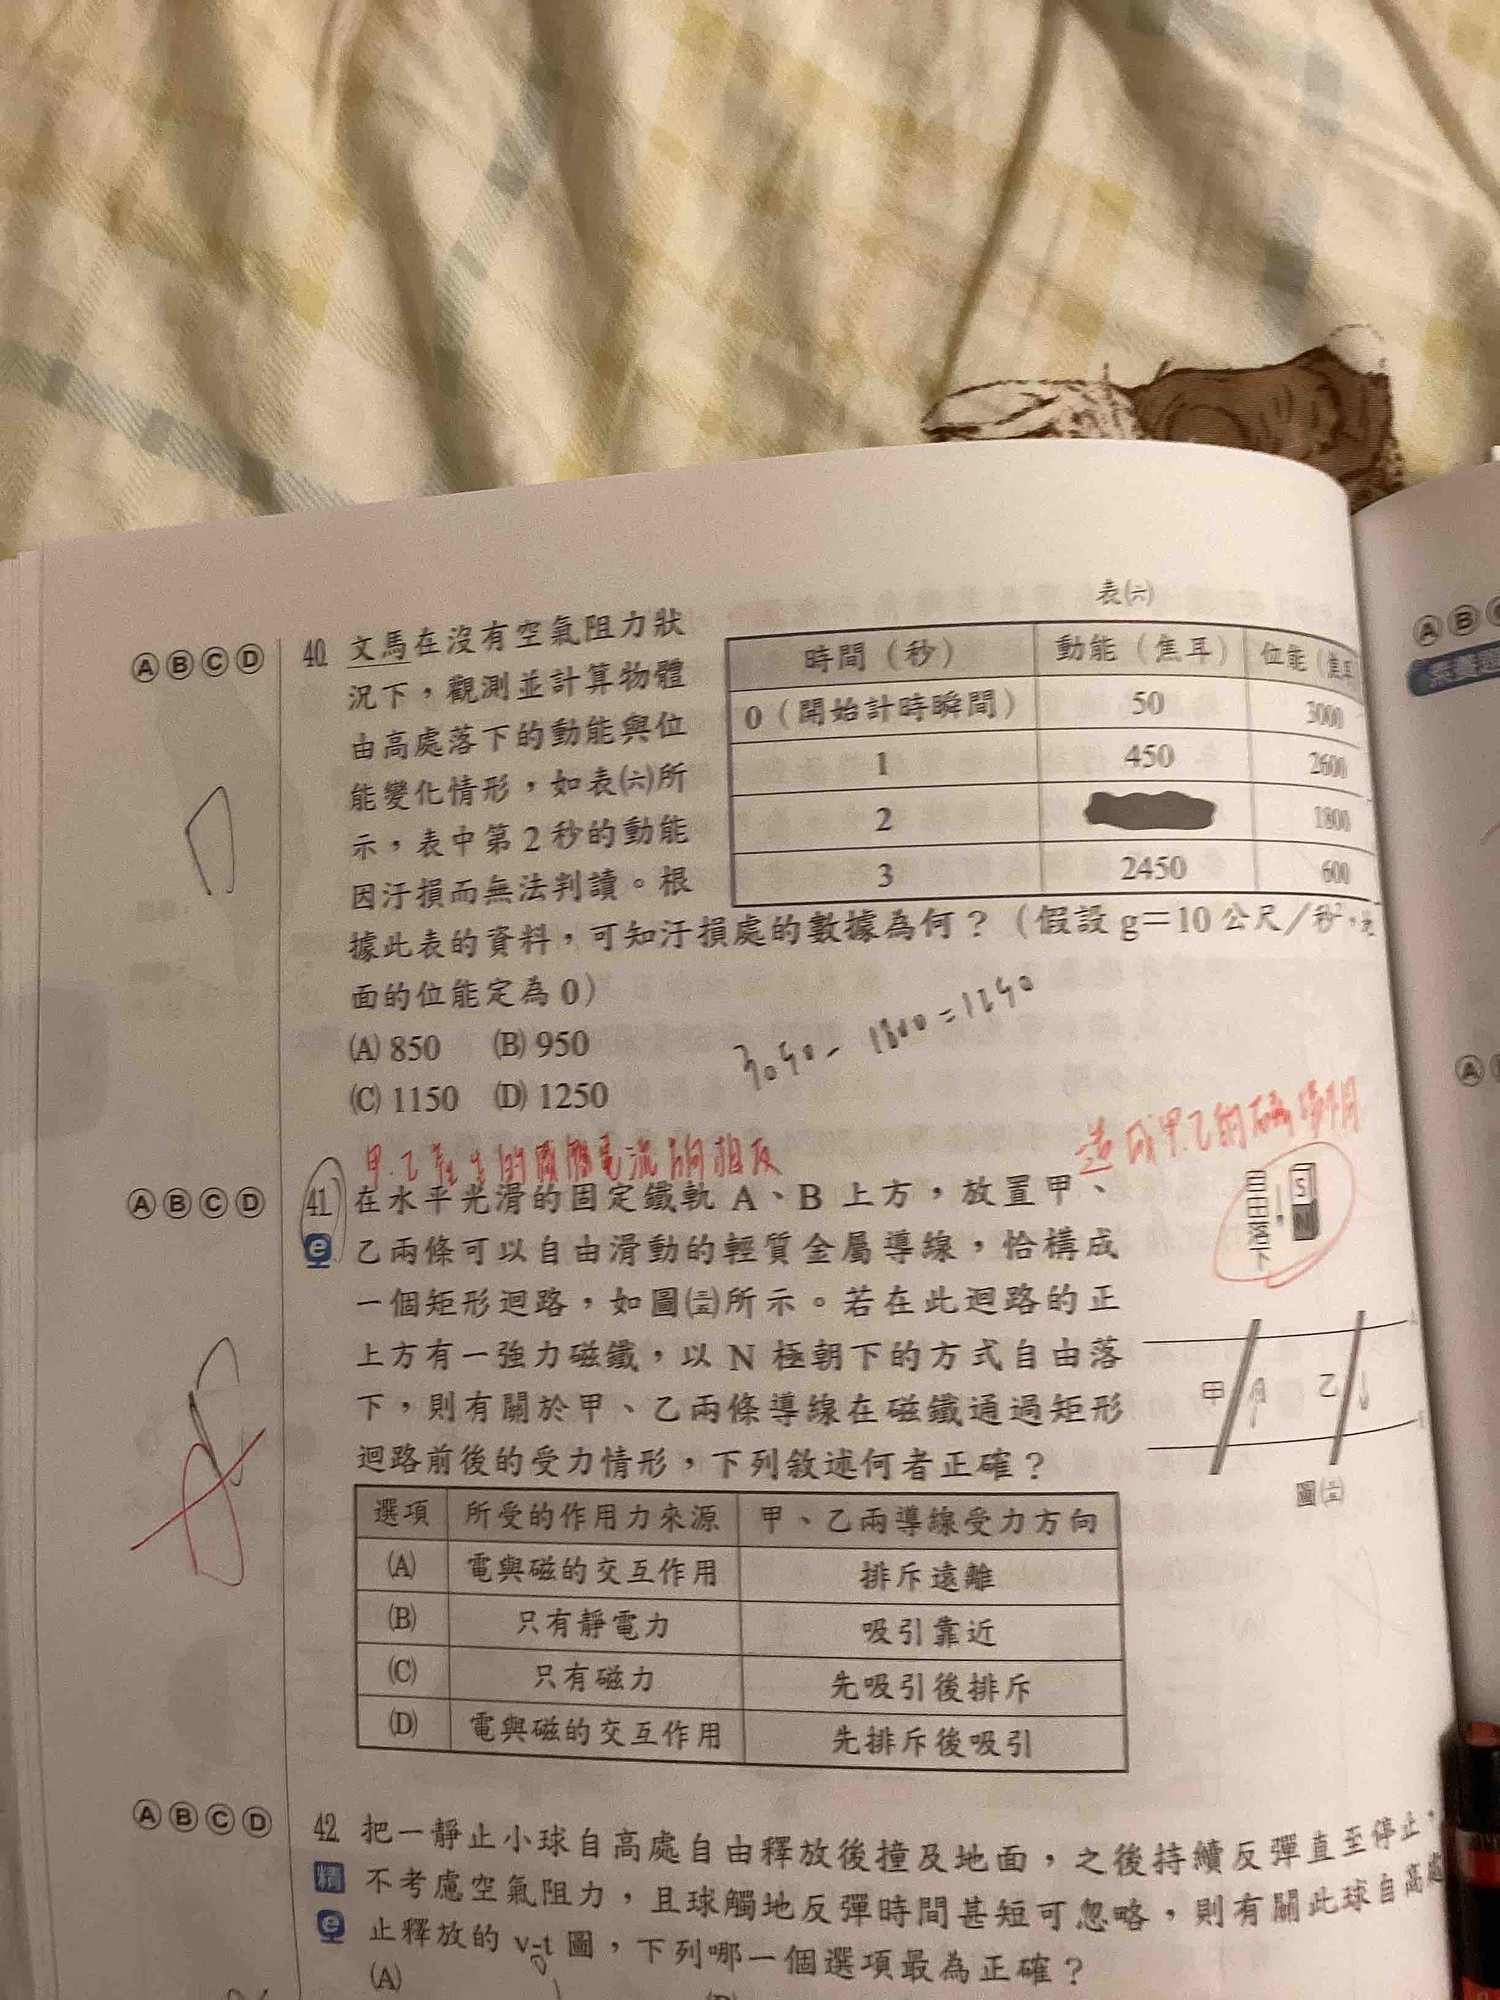 表㈥
ⒶⒷⒸⒹ 40. 文馬在沒有空氣阻力狀
況下，觀測並計算物體
由高處落下的動能與位
能變化情形，如表㈥所
示，表中第2秒的動能
因汙損而無法判讀。根
據此表的資料，可知汙損處的數據為何？（假設g＝10公尺／秒²，
面的位能定為0）
時間（秒） 動能（焦耳） 位能（焦耳
0（開始計時瞬間） 50 3000
1 450 2600
2 1800
3 2450 600
(A) 850 (B) 950
(C) 1150 (D) 1250
3050-1800=1250
D
甲.乙產生的感應電流方向相反
造成甲.乙的磁場不同
ⒶⒷⒸⒹ 41. 在水平光滑的固定鐵軌A、B上方，放置甲、
乙兩條可以自由滑動的輕質金屬導線，恰構成
一個矩形迴路，如圖(三五)所示。若在此迴路的正
上方有一強力磁鐵，以N極朝下的方式自由落
下，則有關於甲、乙兩條導線在磁鐵通過矩形
迴路前後的受力情形，下列敘述何者正確？
自由落下
S
N
甲
乙
圖(三五)
選項 所受的作用力來源 甲、乙兩導線受力方向
(A) 電與磁的交互作用 排斥遠離
(B) 只有靜電力 吸引靠近
(C) 只有磁力 先吸引後排斥
(D) 電與磁的交互作用 先排斥後吸引
ⒶⒷⒸⒹ 42. 把一靜止小球自高處自由釋放後撞及地面，之後持續反彈直至停止，
精 不考慮空氣阻力，且球觸地反彈時間甚短可忽略，則有關此球自高處
e 止釋放的v-t圖，下列哪一個選項最為正確？
(A)